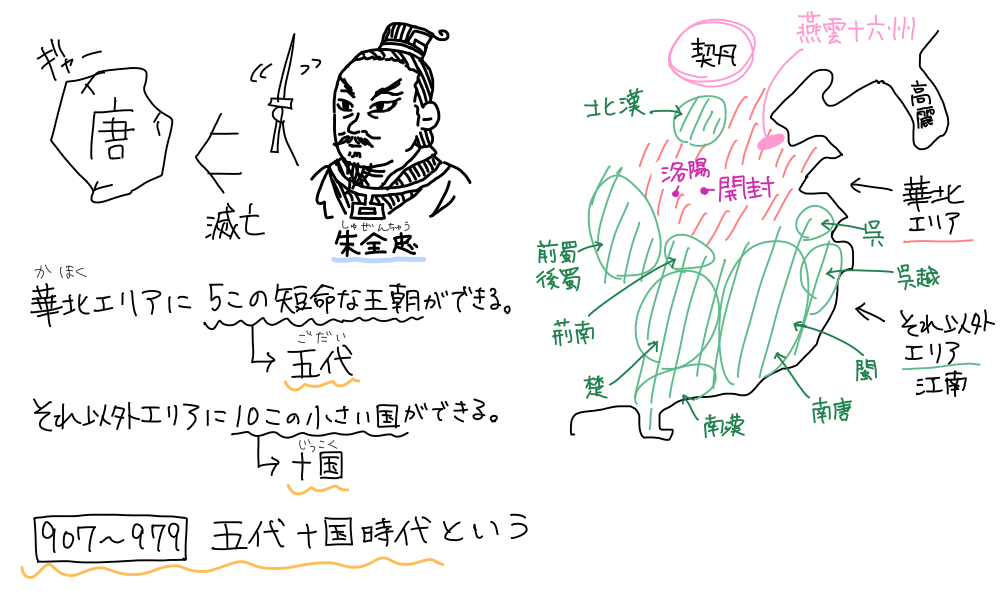 ギャー
唐
滅亡
しゅぜんちゅう
朱全忠
かほく
華北エリアに5この短命な王朝ができる。
ごだい
五代
それ以外エリアに10この小さい国ができる。
じっこく
十国
907〜979 五代十国時代という
燕雲十六州
契丹
高麗
北漢
洛陽
開封
華北
エリア
呉
前蜀
後蜀
呉越
荊南
それ以外
エリア
江南
閩
楚
南唐
南漢